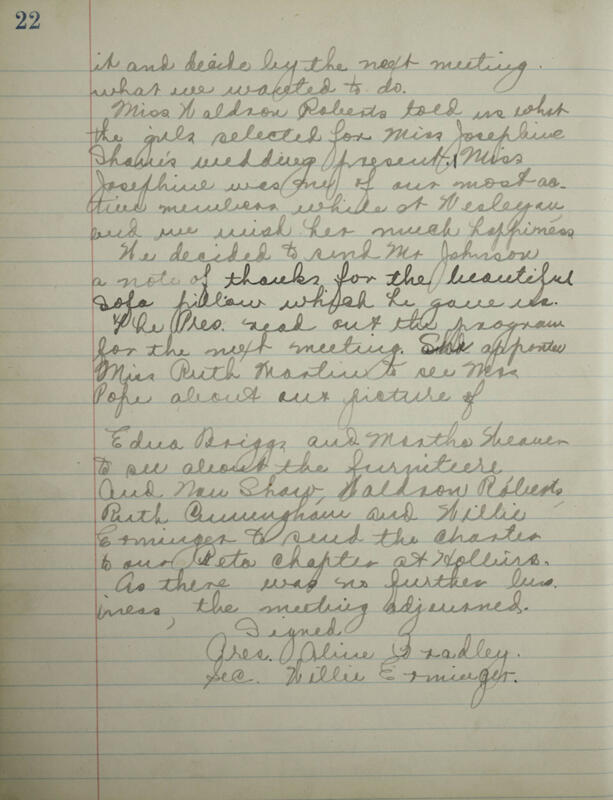 22
it and decide by the next meeting.
what we wanted to do.
Miss Waldron Roberts told us what
the girls selected for Miss Josephine
wedding present. Miss
Josephine was one of our most ac-
tive members while at Wesleyan
and we wish her much happiness
We decided to send Mr Johnson
a note of thanks for the beautiful
sofa pillow which he gave us.
The Pres. read out the program
for the next meeting. She
Miss Ruth Martin to see Mrs
Pope about our picture of
Edna Briggs and Martha Weaver
to see about the furniteere
And Nan Shaw, Waldron Roberts,
Ruth Cunningham and Willie
Erminger to send the charter
to our Beta chapter at Hollins.
As there was no further bus-
iness, the meeting adjourned.
Signed
Pres. Aline Bradley.
Sec. Willie Erminger.